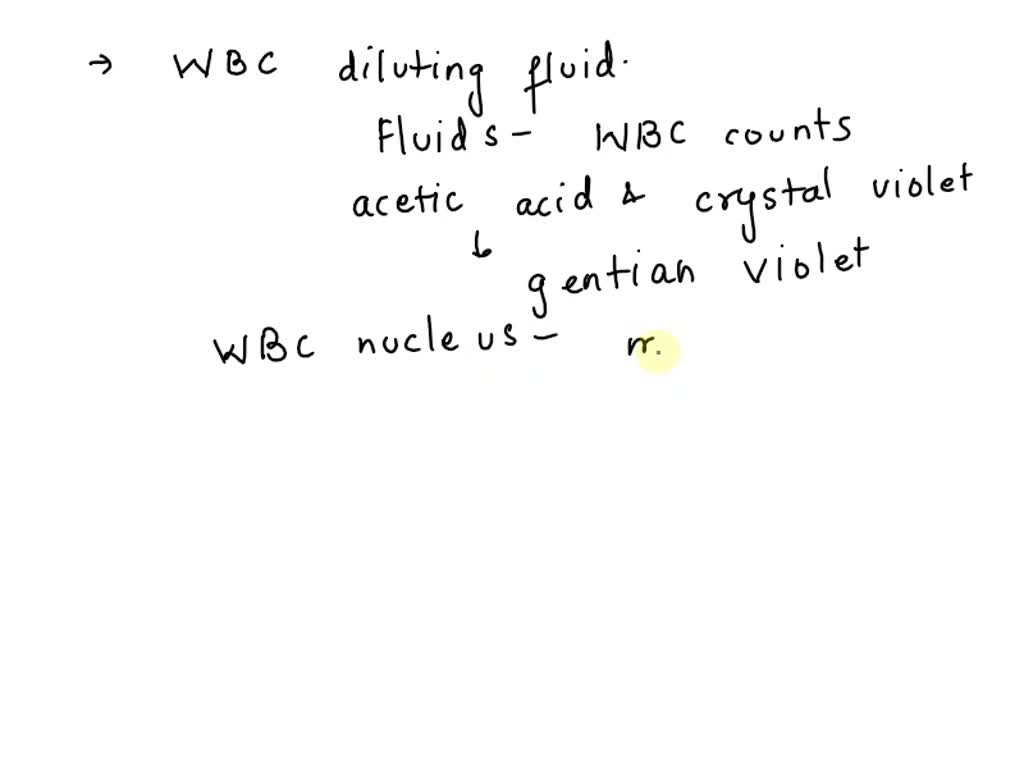 → WBC diluting fluid.
Fluids - WBC counts
acetic acid & crystal violet
↓
gentian violet
WBC nucleus -